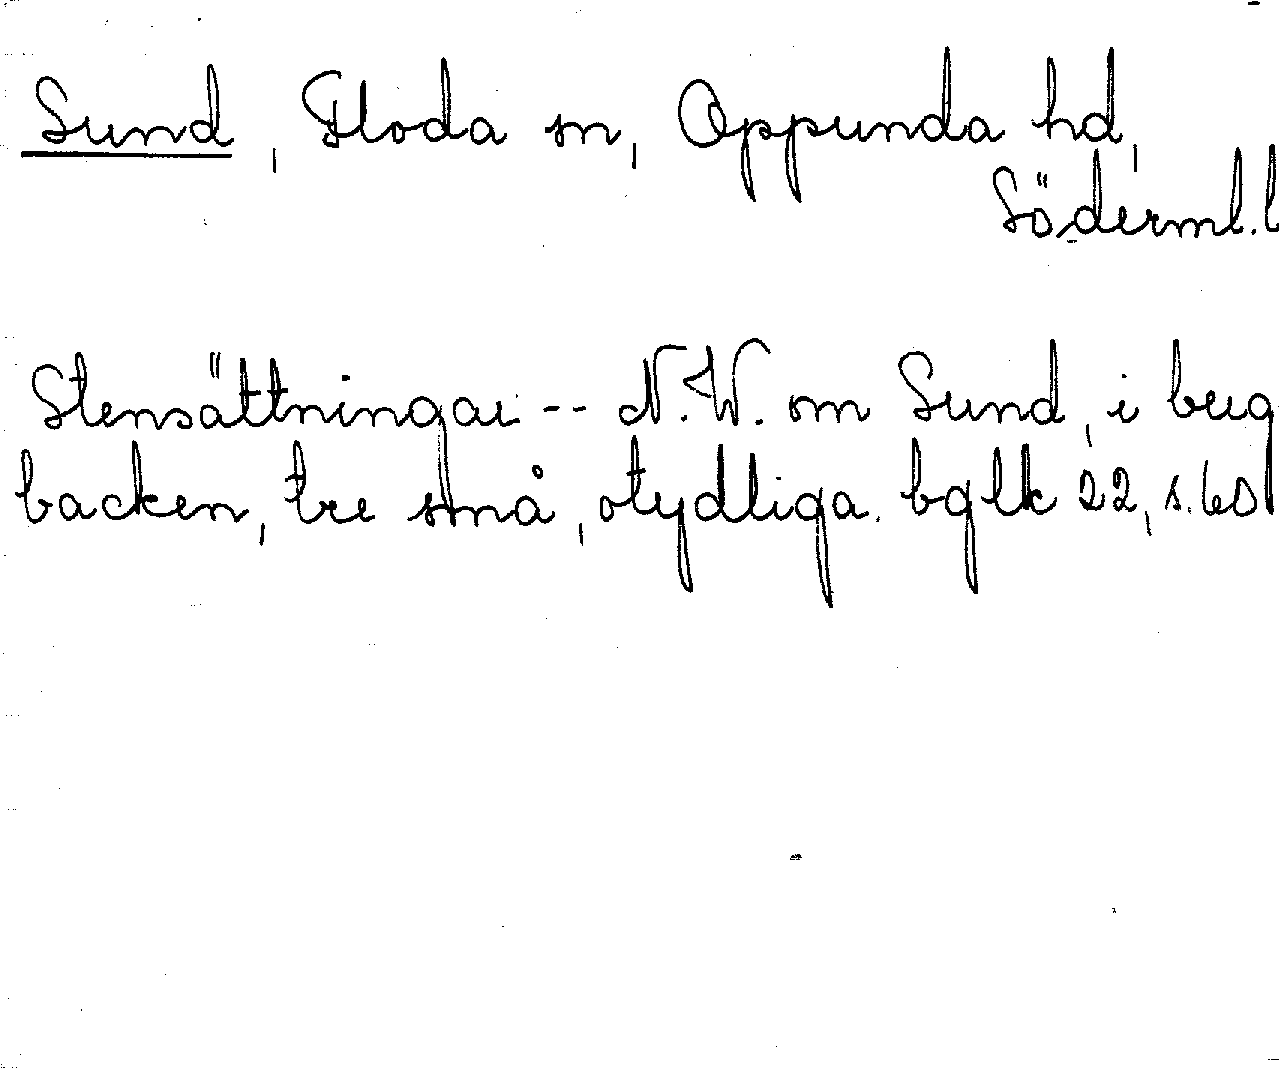 Sund, Floda sn, Oppunda hd,
Söderml. l
Stensättningar -- N.W. om Sund, i berg
backen, tre små, otydliga. bglk 22, s. 60